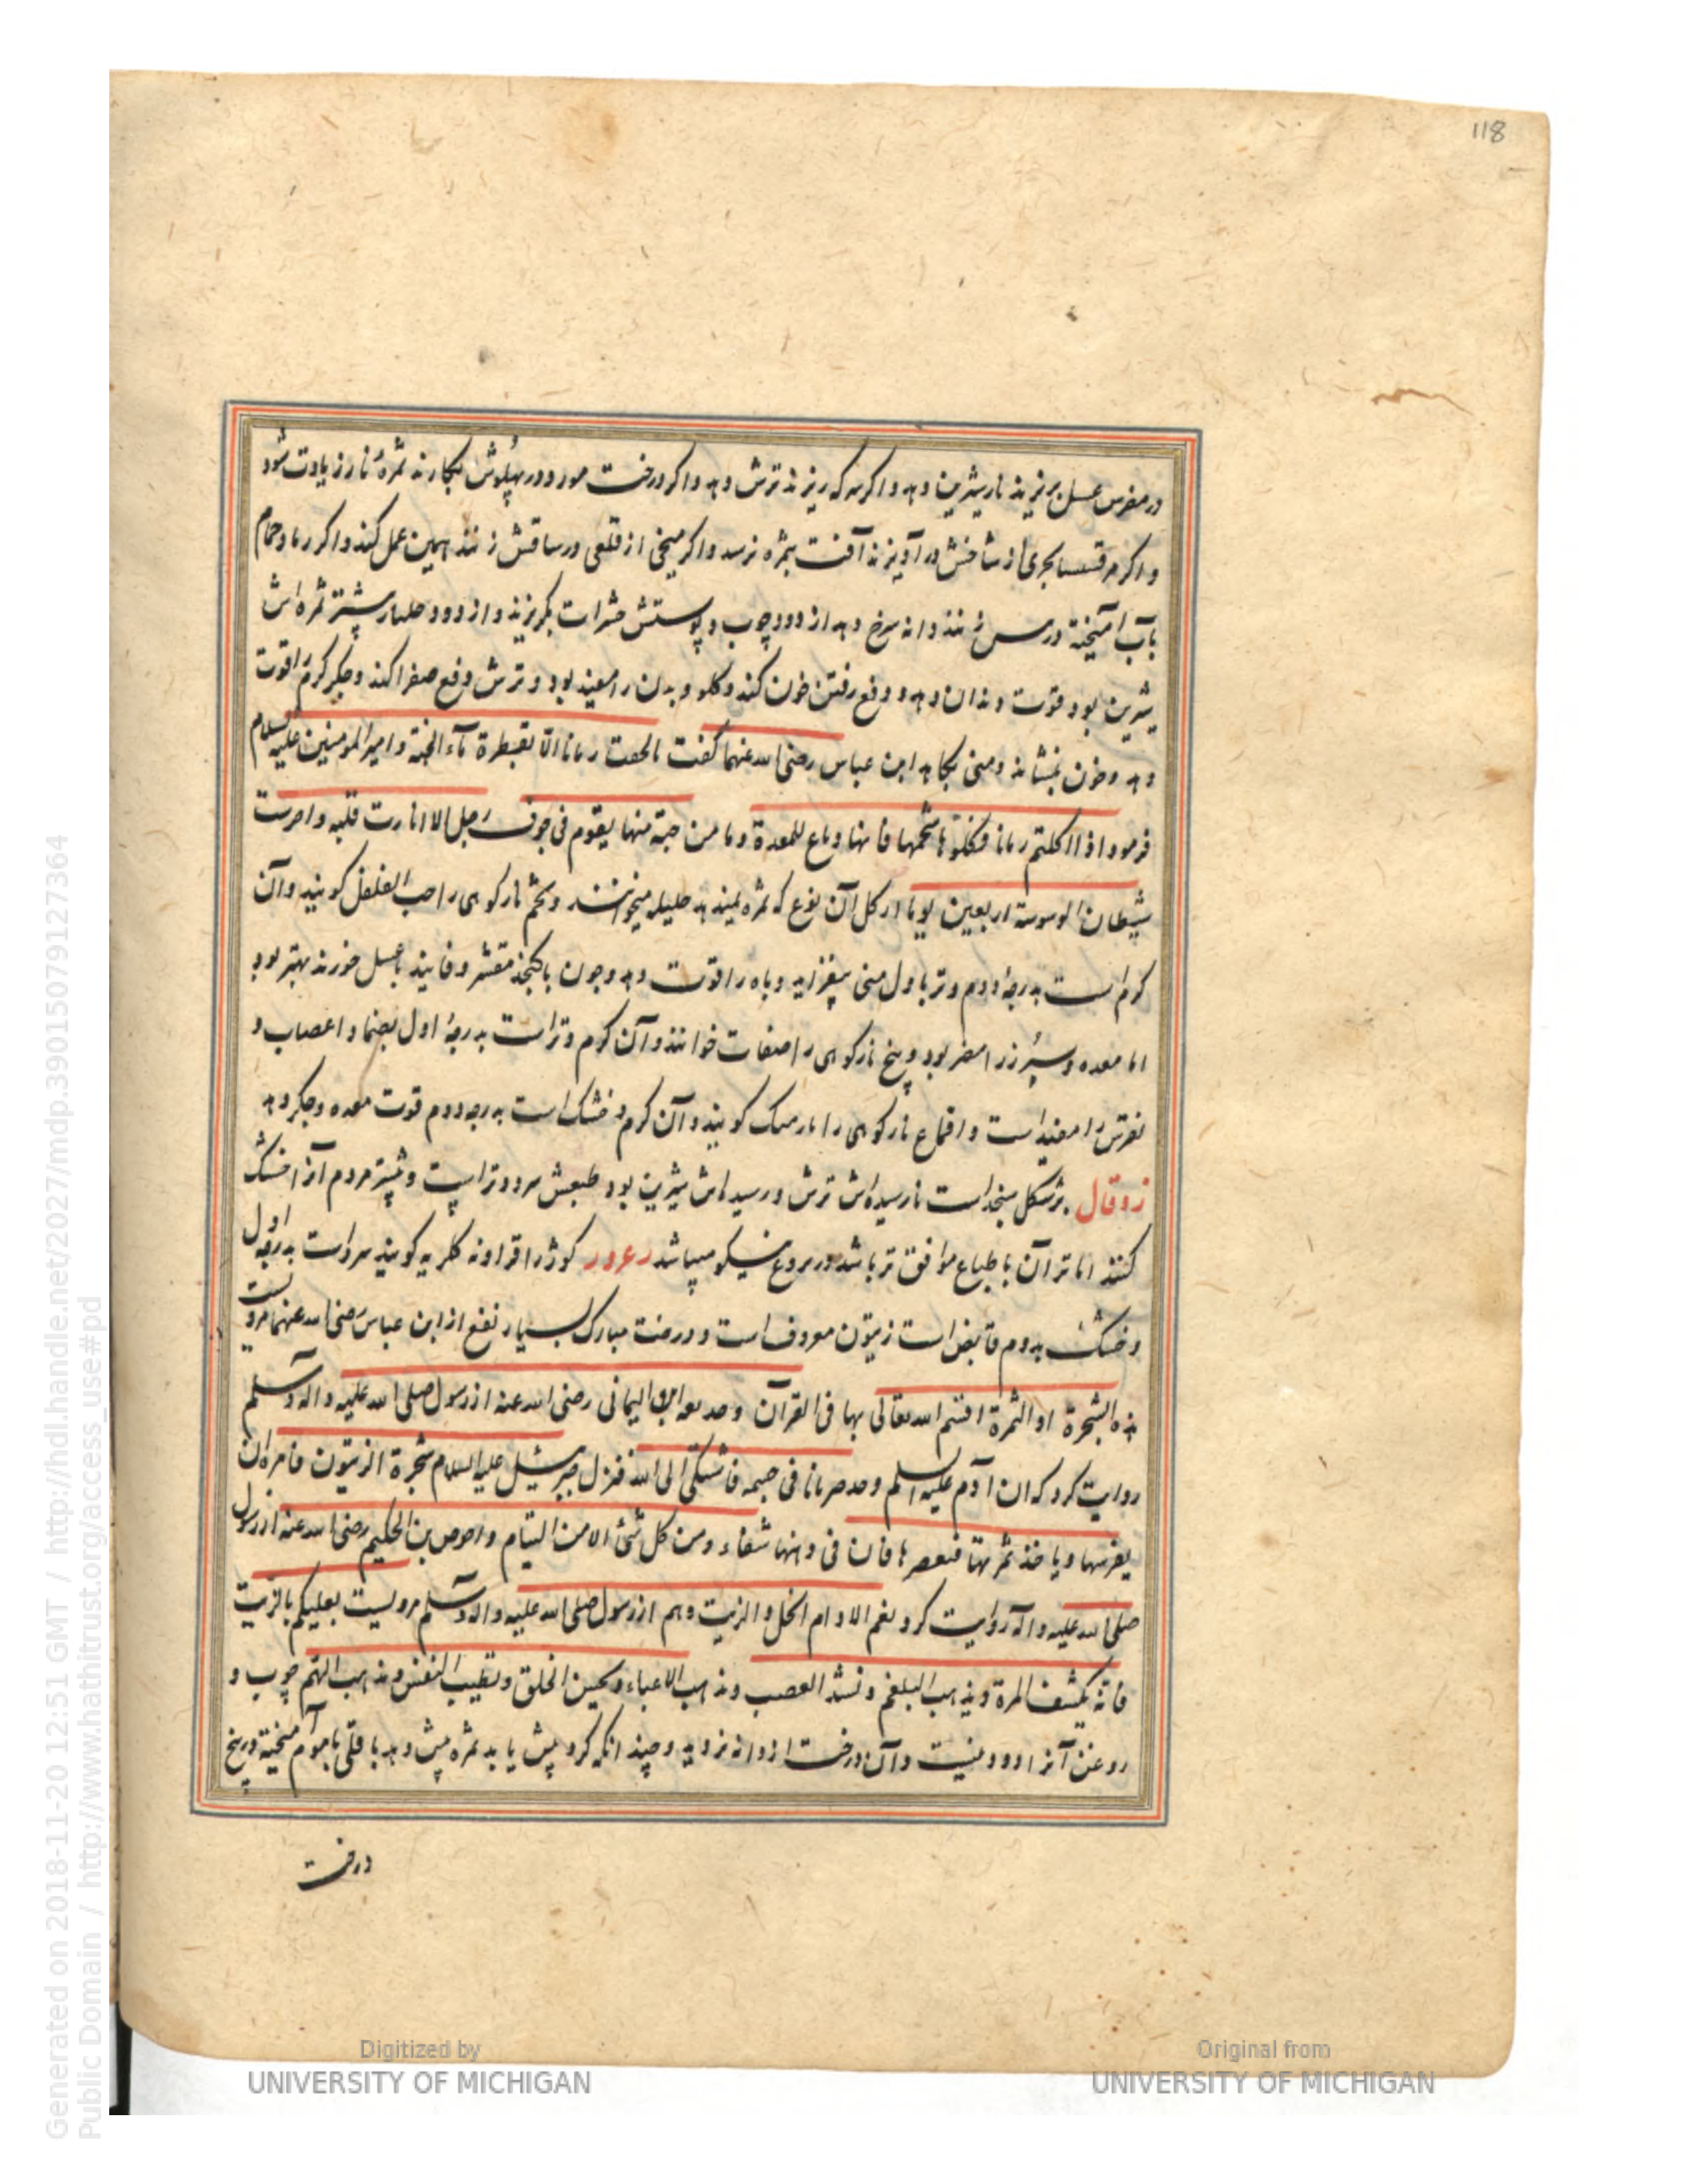 118
در مغرس عسل بریزند نار شیرین دهد و اکر سرکه ریزند ترش دهد و اکر درخت مورد در پهلوش بکارند ثمرهٔ نار زیادت شود
و اکر مر قشسا بحری از شاخش در آویزند آفت بثمره نرسد و اکر میخی از قلعی در ساقش زنند همین عمل کند و اکر رماد حمام
بآب آمیخته در زنند دانه سرخ دهد از دود چوب و پوستش حشرات بکریزند و از دود ثمره اش
شیرین بود قوت دندان دهد و دفع رفتن خون کند و کلو و بدن را مفید بود و ترش دفع صفرا کند و جکر کرم را قوت
دهد و خون بنشاند و منی بکاهد ابن عباس رضی الله عنهما کفت ما لحقت رمانا الا بقطرة ماء الجنة و امیر المومنین علیه السلام
فرمود اذا اکلتم رمانا فکلوها شحمها فانها دباغ للمعدة و ما من حبة منها یقوم فی جوف رجل الا انارت قلبه و اخرست
شیطان الوسوسة اربعین یوما از کل آن نوع که ثمره نمیدهد میخوانند و تخم نارکوهی را حب الفلفل کویند و آن
کرم است بدرجهٔ دوم و تر باول منی بیفزاید و باه را قوت دهد و چون با کنجد مقشر و فانید با عسل خورند بهتر بود
اما معده و سپرز را مضر بود و بیخ نارکوهی را خوانند و آن کرم و تر است بدرجهٔ اول و اعصاب و
نقرس را مفید است و اقماع نارکوهی را نارمسک کویند و آن کرم و خشک است بدرجه دوم قوت معده و جکر دهد
زوقال بر شکل سنجد است نارسیده اش ترش و رسیده اش شیرین بود طبعش سرد و تر است و بیشتر مردم آنرا خشک
کنند اما تر آن با طباع موافق تر باشد میباشد زعرور کویند سرد است بدرجه اول
و خشک بدوم قابض است زیتون معروف است و درخت مبارک بسیار نفع از ابن عباس رضی الله عنهما مرویست
هذه الشجرة او الثمرة اقسم الله تعالی بها فی القرآن و الیمانی رضی الله عنه از رسول صلی الله علیه و آله و سلم
روایت کرد که ان آدم علیه السلم وجد ضربانا فی جسمه فاشتکی الی الله فنزل جبرئیل علیه السلام شجرة الزیتون فامره ان
یغرسها و یاخذ ثمرتها فیعصرها فان فی دهنها شفاء من کل شئ الا من السام و بن الحکیم رضی الله عنه از رسول
صلی الله علیه و آله روایت کرد نعم الادام الخل و الزیت و هم از رسول صلی الله علیه و آله و سلم مرویست بعلیکم بالزیت
فانه یکشف المرة و یذهب البلغم و تشد العصب و یذهب الاعیاء و یحسن الخلق و تطیب النفس و یذهب الهم چوب و
روغن آنرا دود نیست و آن درخت از دانه نروید و چندانکه کرد بیش یابد ثمره بیش دهد باقلی بآب آمیخته در بیخ
درخت
Generated on 2018-11-20 12:51 GMT / http://hdl.handle.net/2027/mdp.39015079127364
Public Domain / http://www.hathitrust.org/access_use#pd
Digitized by
UNIVERSITY OF MICHIGAN
Original from
UNIVERSITY OF MICHIGAN